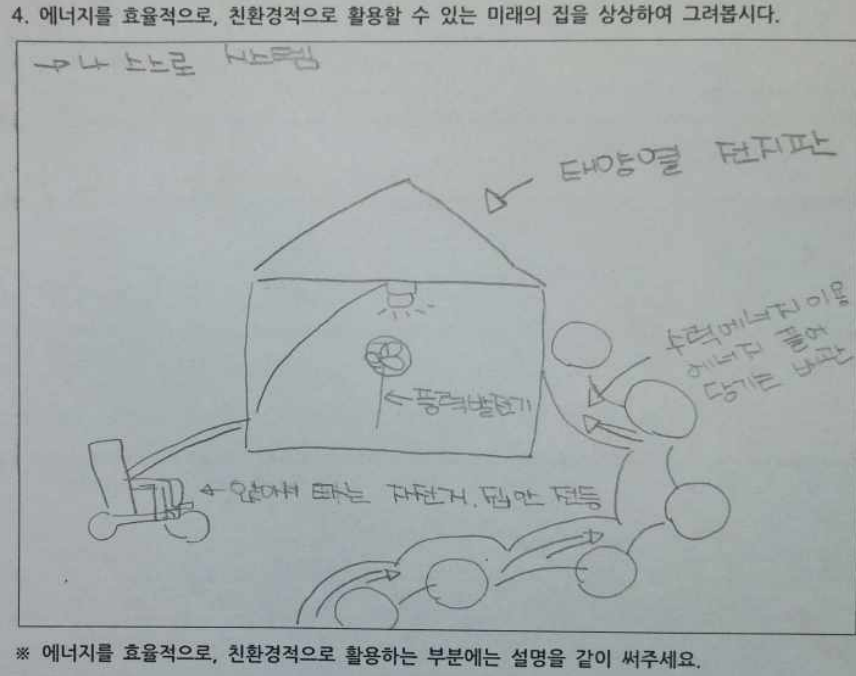 4. 에너지를 효율적으로, 친환경적으로 활용할 수 있는 미래의 집을 상상하여 그려봅시다.
→ 나 스스로 시스템
태양열 전지판
수력에너지 이용
에너지
← 풍력발전기
← 앉아서 타는 자전거, 집안 전등
※ 에너지를 효율적으로, 친환경적으로 활용하는 부분에는 설명을 같이 써주세요.